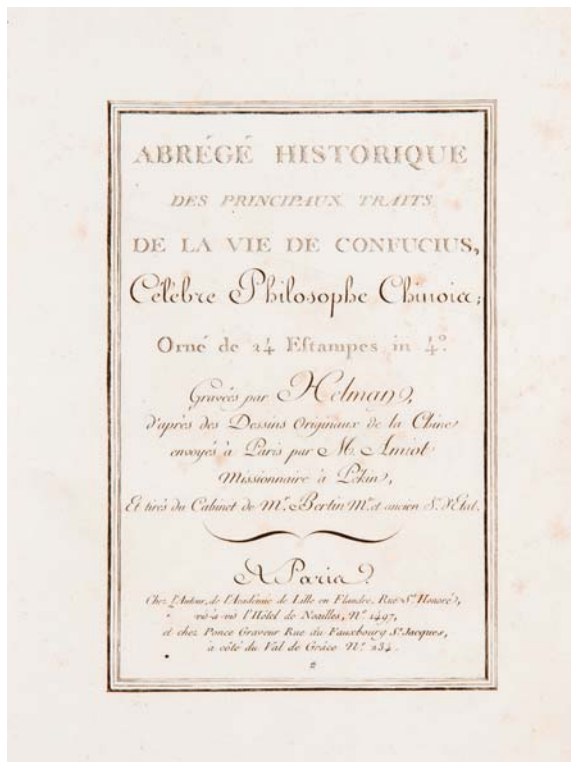 ABRÉGÉ HISTORIQUE
DES PRINCIPAUX TRAITS
DE LA VIE DE CONFUCIUS,
Célèbre Philosophe Chinois;
Orné de 24 Eſtampes in 4.º
Gravées par Helman,
d'après des Dessins Originaux de la Chine
envoyés à Paris par M. Amiot
Missionnaire à Pékin,
Et tirés du Cabinet de Mr. Bertin Mre. et ancien Sre. d'Etat.
A Paris,
Chez l'Auteur, de l'Académie de Lille en Flandre, Rue St. Honoré,
vis-à-vis l'Hôtel de Noailles, No. 1497,
et chez Ponce Graveur Rue du Fauxbourg St. Jacques,
à côté du Val de Grâce No. 234.